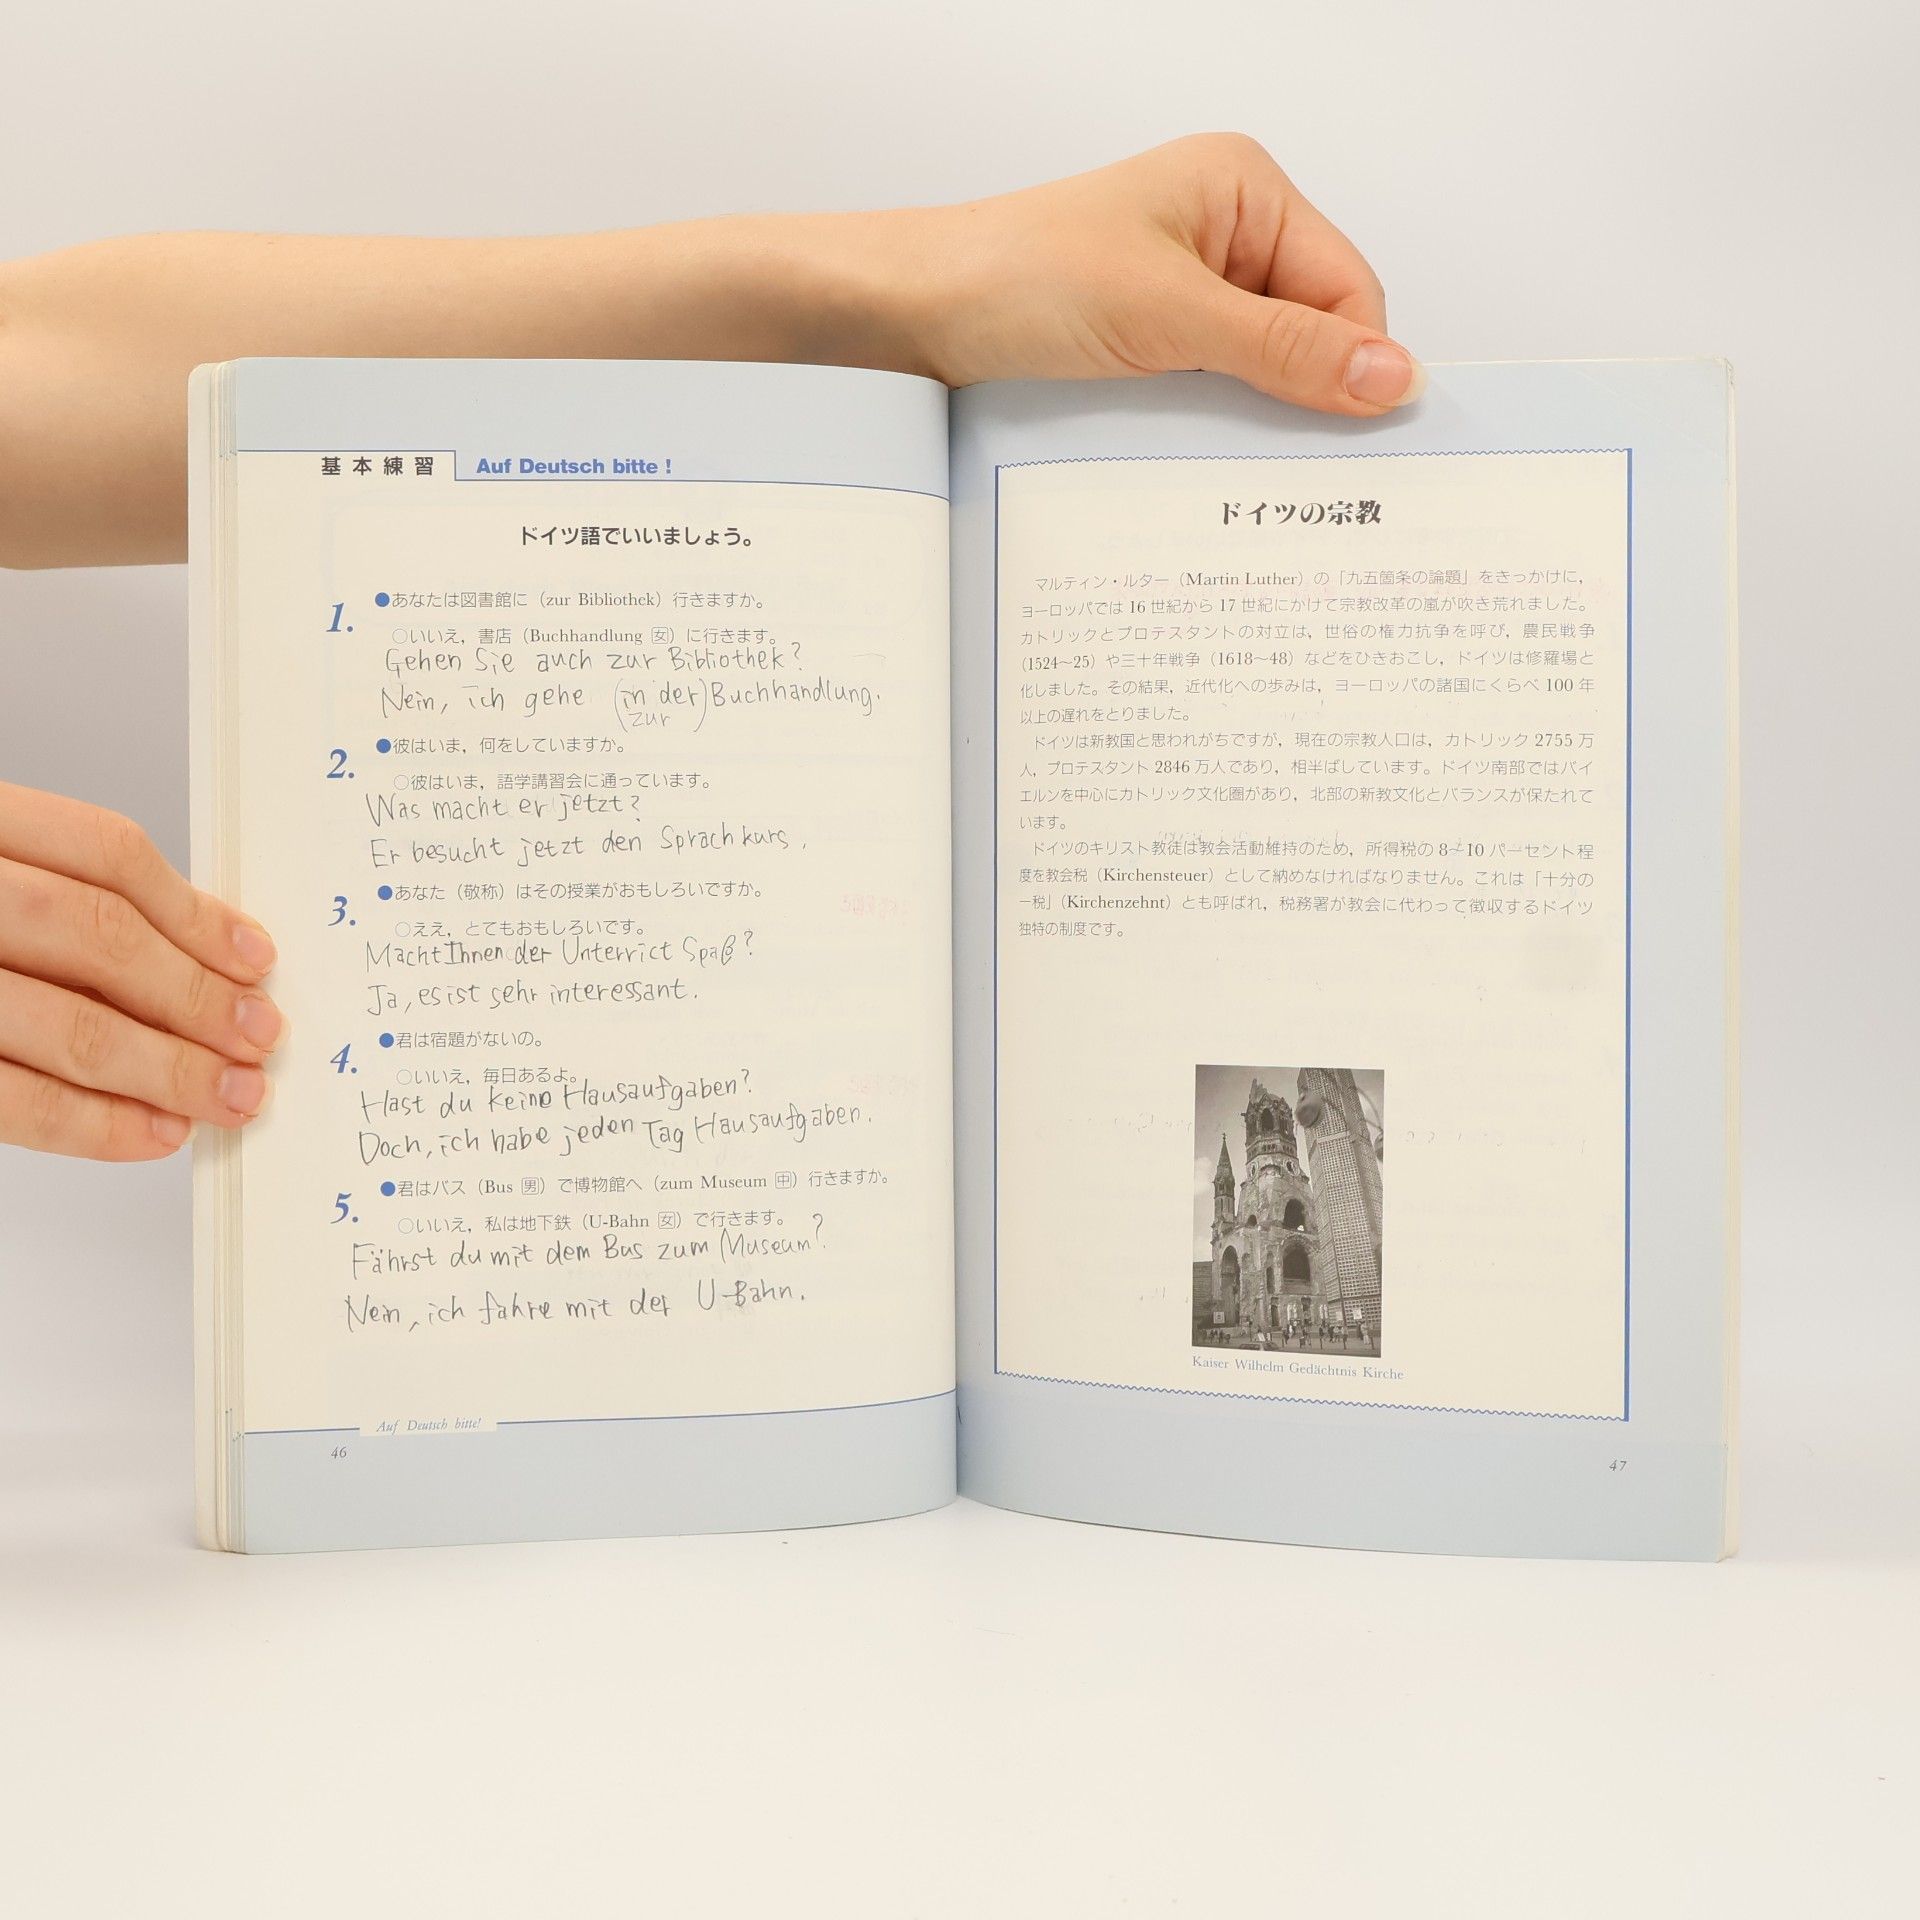 基本練習 Auf Deutsch bitte !
ドイツ語でいいましょう。
1. ●あなたは図書館に（zur Bibliothek）行きますか。
○いいえ，書店（Buchhandlung 女）に行きます。
Gehen Sie auch zur Bibliothek?
Nein, ich gehe (in der) Buchhandlung.
zur
2. ●彼はいま，何をしていますか。
○彼はいま，語学講習会に通っています。
Was macht er jetzt?
Er besucht jetzt den Sprachkurs.
3. ●あなた（敬称）はその授業がおもしろいですか。
○ええ，とてもおもしろいです。
Macht Ihnen der Unterrict Spaß?
Ja, es ist sehr interessant.
4. ●君は宿題がないの。
○いいえ，毎日あるよ。
Hast du keine Hausaufgaben?
Doch, ich habe jeden Tag Hausaufgaben.
5. ●君はバス（Bus 男）で博物館へ（zum Museum 中）行きますか。
○いいえ，私は地下鉄（U-Bahn 女）で行きます。
Fährst du mit dem Bus zum Museum?
Nein, ich fahre mit der U-Bahn.
Auf Deutsch bitte!
46
ドイツの宗教
マルティン・ルター（Martin Luther）の「九五箇条の論題」をきっかけに，
ヨーロッパでは 16 世紀から 17 世紀にかけて宗教改革の嵐が吹き荒れました。
カトリックとプロテスタントの対立は，世俗の権力抗争を呼び，農民戦争
（1524〜25）や三十年戦争（1618〜48）などをひきおこし，ドイツは修羅場と
化しました。その結果，近代化への歩みは，ヨーロッパの諸国にくらべ 100 年
以上の遅れをとりました。
ドイツは新教国と思われがちですが，現在の宗教人口は，カトリック 2755 万
人，プロテスタント 2846 万人であり，相半ばしています。ドイツ南部ではバイ
エルンを中心にカトリック文化圏があり，北部の新教文化とバランスが保たれて
います。
ドイツのキリスト教徒は教会活動維持のため，所得税の 8〜10 パーセント程
度を教会税（Kirchensteuer）として納めなければなりません。これは「十分の
一税」（Kirchenzehnt）とも呼ばれ，税務署が教会に代わって徴収するドイツ
独特の制度です。
Kaiser Wilhelm Gedächtnis Kirche
47